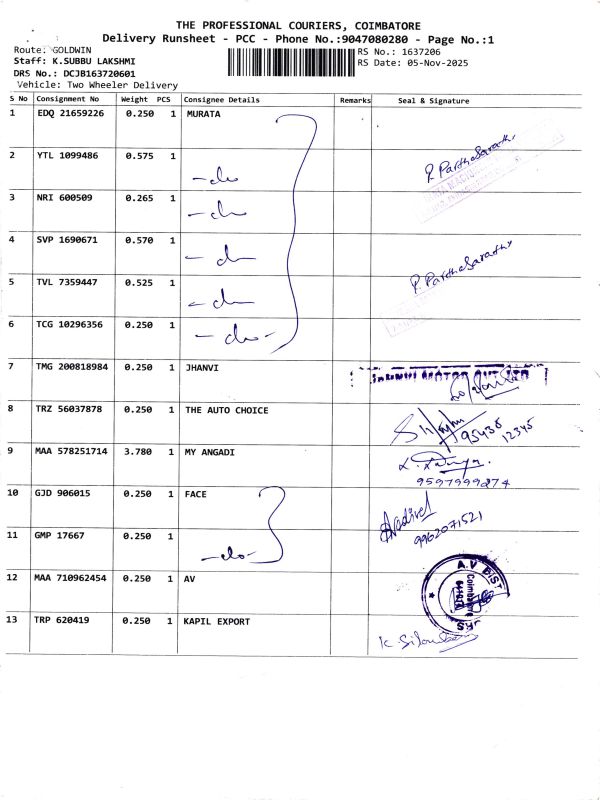 THE PROFESSIONAL COURIERS, COIMBATORE
Delivery Runsheet - PCC - Phone No.:9047080280 - Page No.:1
Route: GOLDWIN
RS No.: 1637206
Staff: K.SUBBU LAKSHMI
RS Date: 05-Nov-2025
DRS No.: DCJB163720601
Vehicle: Two Wheeler Delivery
S No Consignment No Weight PCS Consignee Details Remarks Seal & Signature
1 EDQ 21659226 0.250 1 MURATA
2 YTL 1099486 0.575 1 -do- P. Parthasarathy
3 NRI 600509 0.265 1 -do-
4 SVP 1690671 0.570 1 -do-
5 TVL 7359447 0.525 1 -do- P. Parthasarathy
6 TCG 10296356 0.250 1 -do-
7 TMG 200818984 0.250 1 JHANVI
8 TRZ 56037878 0.250 1 THE AUTO CHOICE 95438 12345
9 MAA 578251714 3.780 1 MY ANGADI
9597999874
10 GJD 906015 0.250 1 FACE
11 GMP 17667 0.250 1 -do- 9962071521
12 MAA 710962454 0.250 1 AV A.V DIST Coimbatore
13 TRP 620419 0.250 1 KAPIL EXPORT